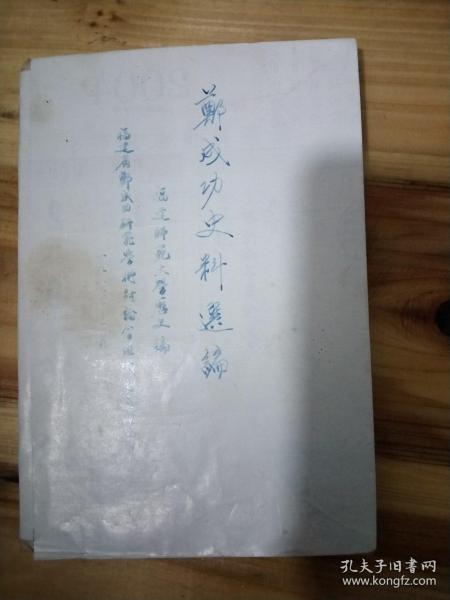 鄭成功史料選編
福建師範大學歷史編
福建省鄭成功研究學術討論会
2004
孔夫子旧书网
www.kongfz.com